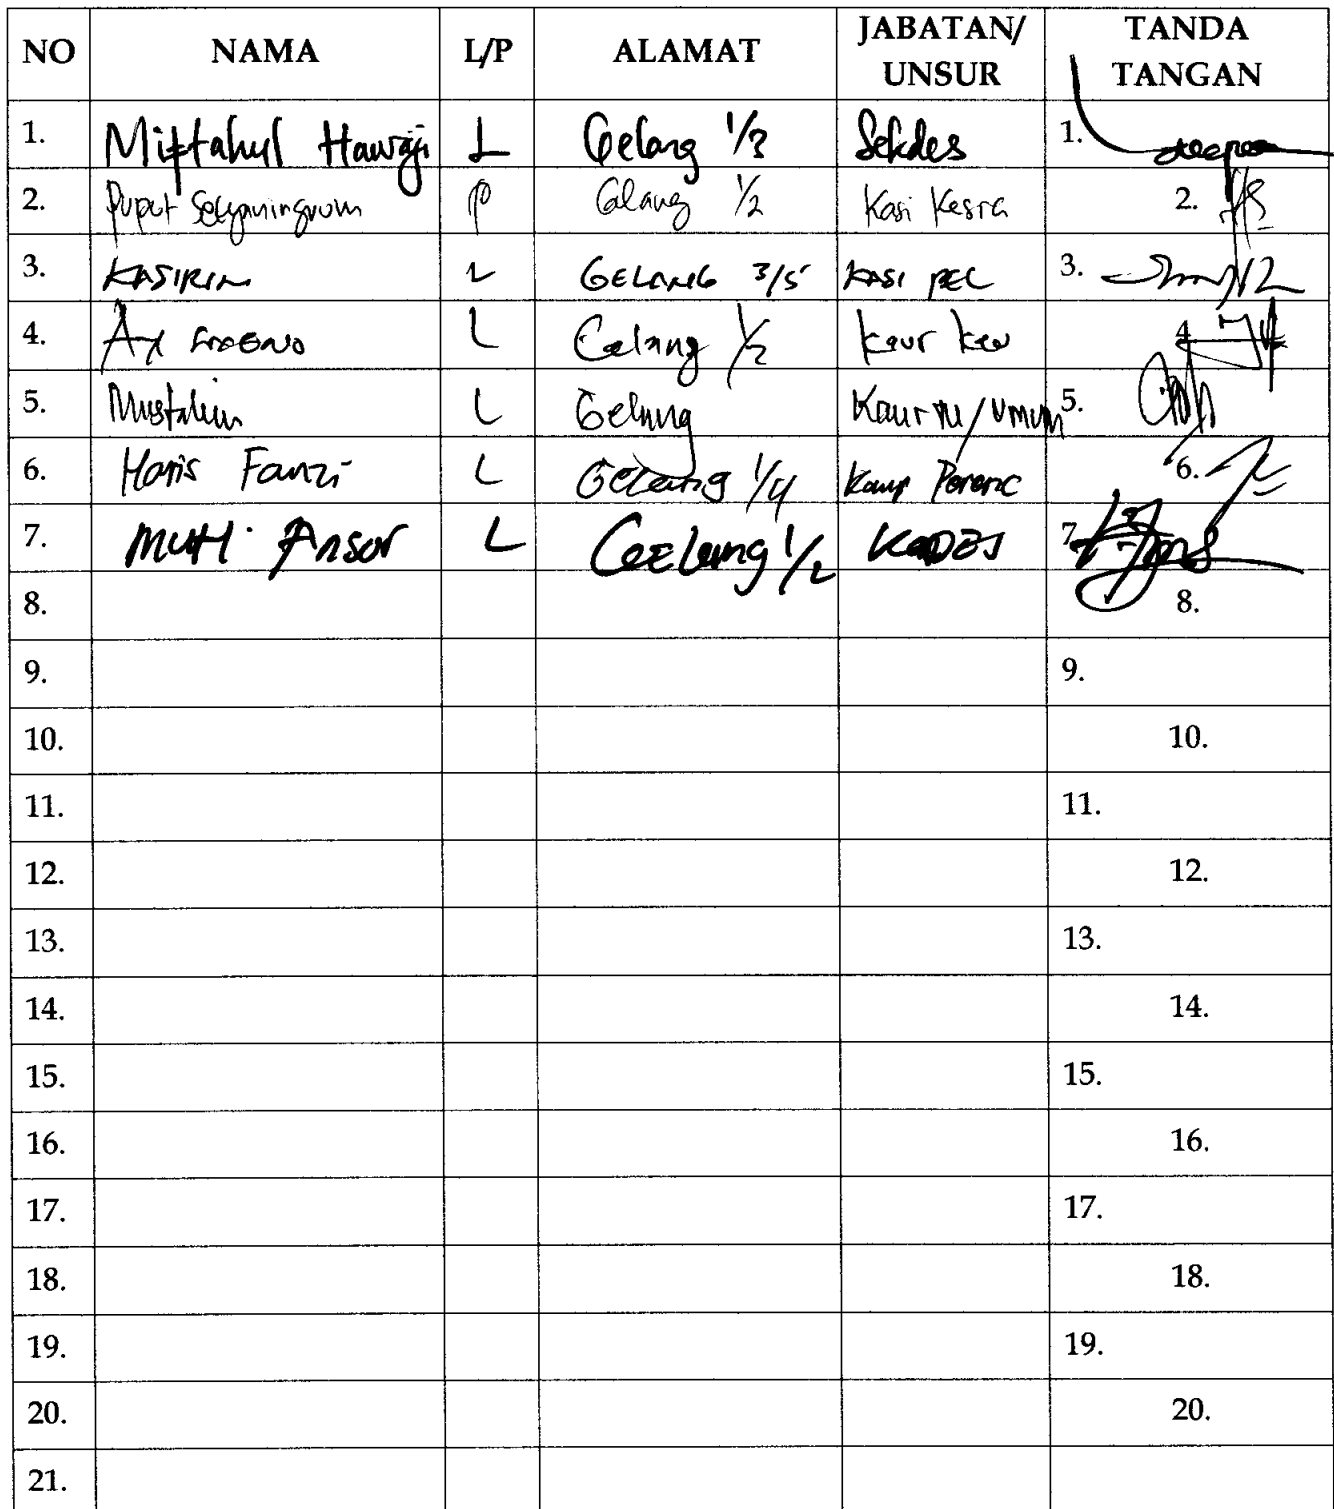 NO NAMA L/P ALAMAT JABATAN/ UNSUR TANDA TANGAN
1. Miftahul Hawaji L Gelang 1/3 Sekdes 1.
2. Puput Setyaningrum P Gelang 1/2 Kasi Kesra 2.
3. KASIRIN L GELANG 3/5 KASI PEL 3.
4. L Gelang 1/2 Kaur Keu 4.
5. Mustakim L Gelang Kaur TU/Umum 5.
6. Haris Fauzi L Gelang 1/4 Kaur Perenc 6.
7. MUH. Ansor L Gelang 1/2 KADES 7.
8. 8.
9. 9.
10. 10.
11. 11.
12. 12.
13. 13.
14. 14.
15. 15.
16. 16.
17. 17.
18. 18.
19. 19.
20. 20.
21.